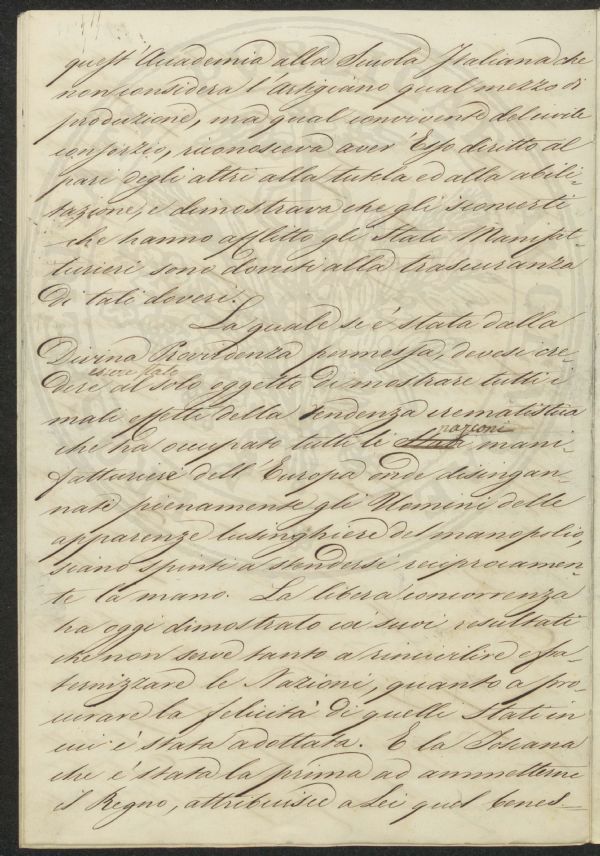 quest'Accademia alla Scuola Italiana che
non considera l'artigiano qual mezzo di
produzione, ma qual convivente del civile
consorzio, riconosceva aver Esso diritto al
pari degli altri alla tutela ed alla abili-
tazione, e dimostrava che gli sconcerti
che hanno afflitto gli Stati Manifat-
turieri sono dovuti alla trascuranza
di tali doveri.
La quale se è stata dalla
Divina Provvidenza permessa, devesi cre-
dere esser stato al solo oggetto di mostrare tutti i
mali effetti della tendenza crematistica
che ha occupato tutte le nazioni mani-
fatturiere dell'Europa onde disingan-
nate pienamente gli Uomini delle
apparenze lusinghiere del manopolio,
siano spinti a stendersi reciprocamen-
te la mano. La libera concorrenza
ha oggi dimostrato coi suoi resultati
che non serve tanto a rincivilire e fra-
ternizzare le Nazioni, quanto a pro-
curare la felicità di quelli Stati in
cui è stata adottata. E la Toscana
che è stata la prima ad ammetterne
il Regno, attribuisce a Lei quel benes-